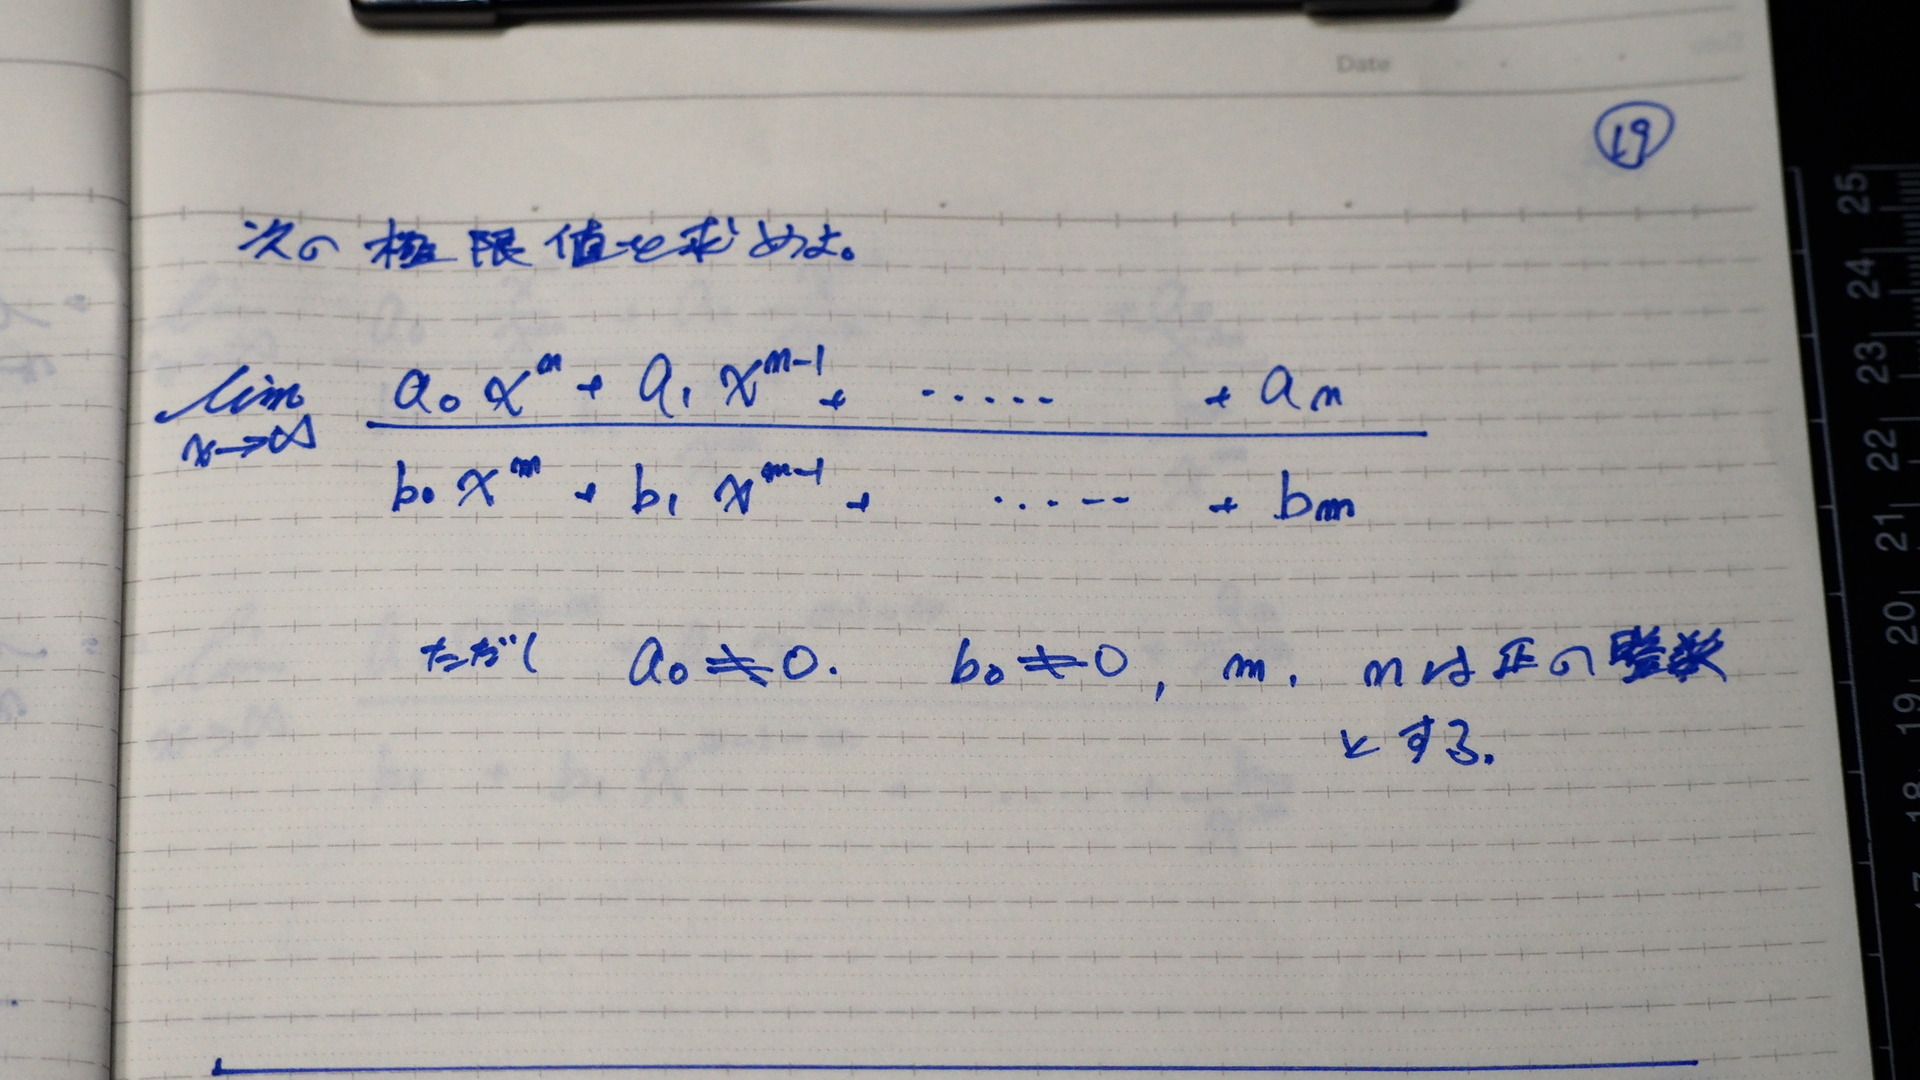 Date
19
次の極限値を求めよ。
lim x→∞ (a₀xⁿ + a₁xⁿ⁻¹ + ····· + aₙ) / (b₀xᵐ + b₁xᵐ⁻¹ + ····-- + bₘ)
ただし a₀≠0. b₀≠0, m. nは正の整数
とする.
25
24
23
22
21
20
19
18
17